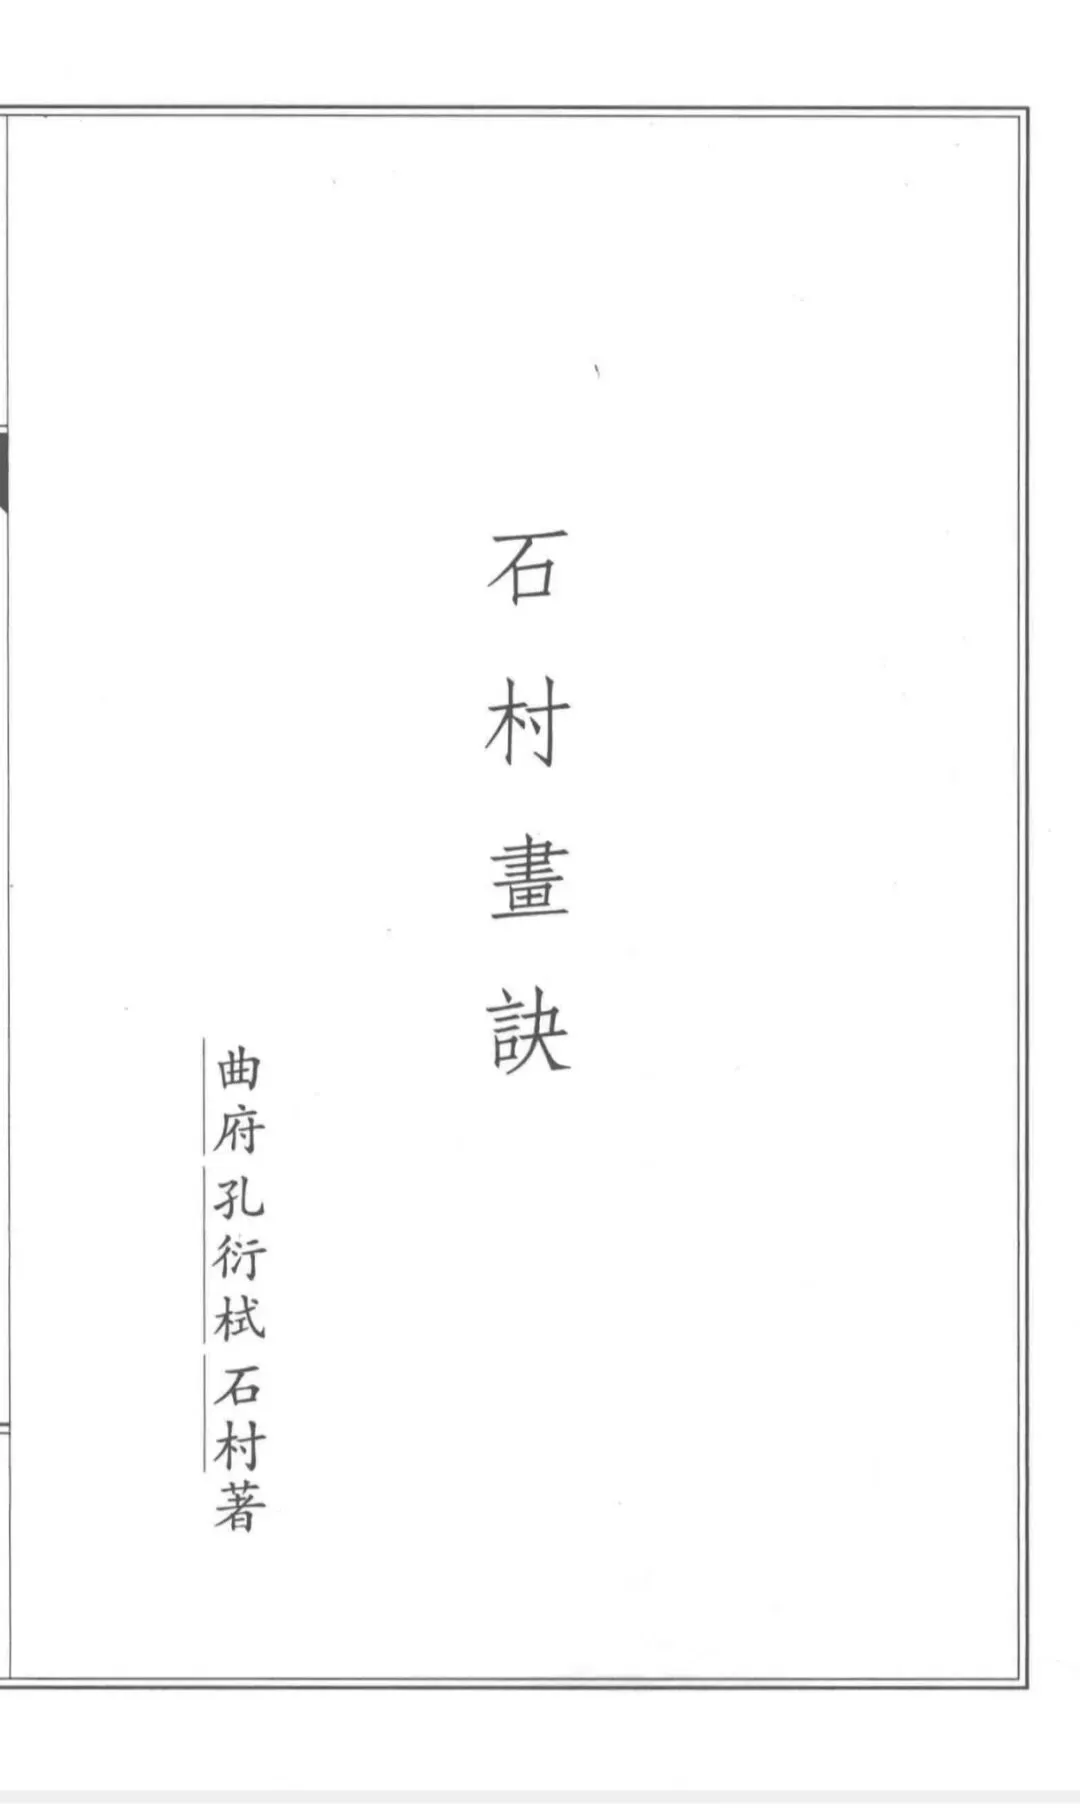 石村畫訣
曲府孔衍栻石村著